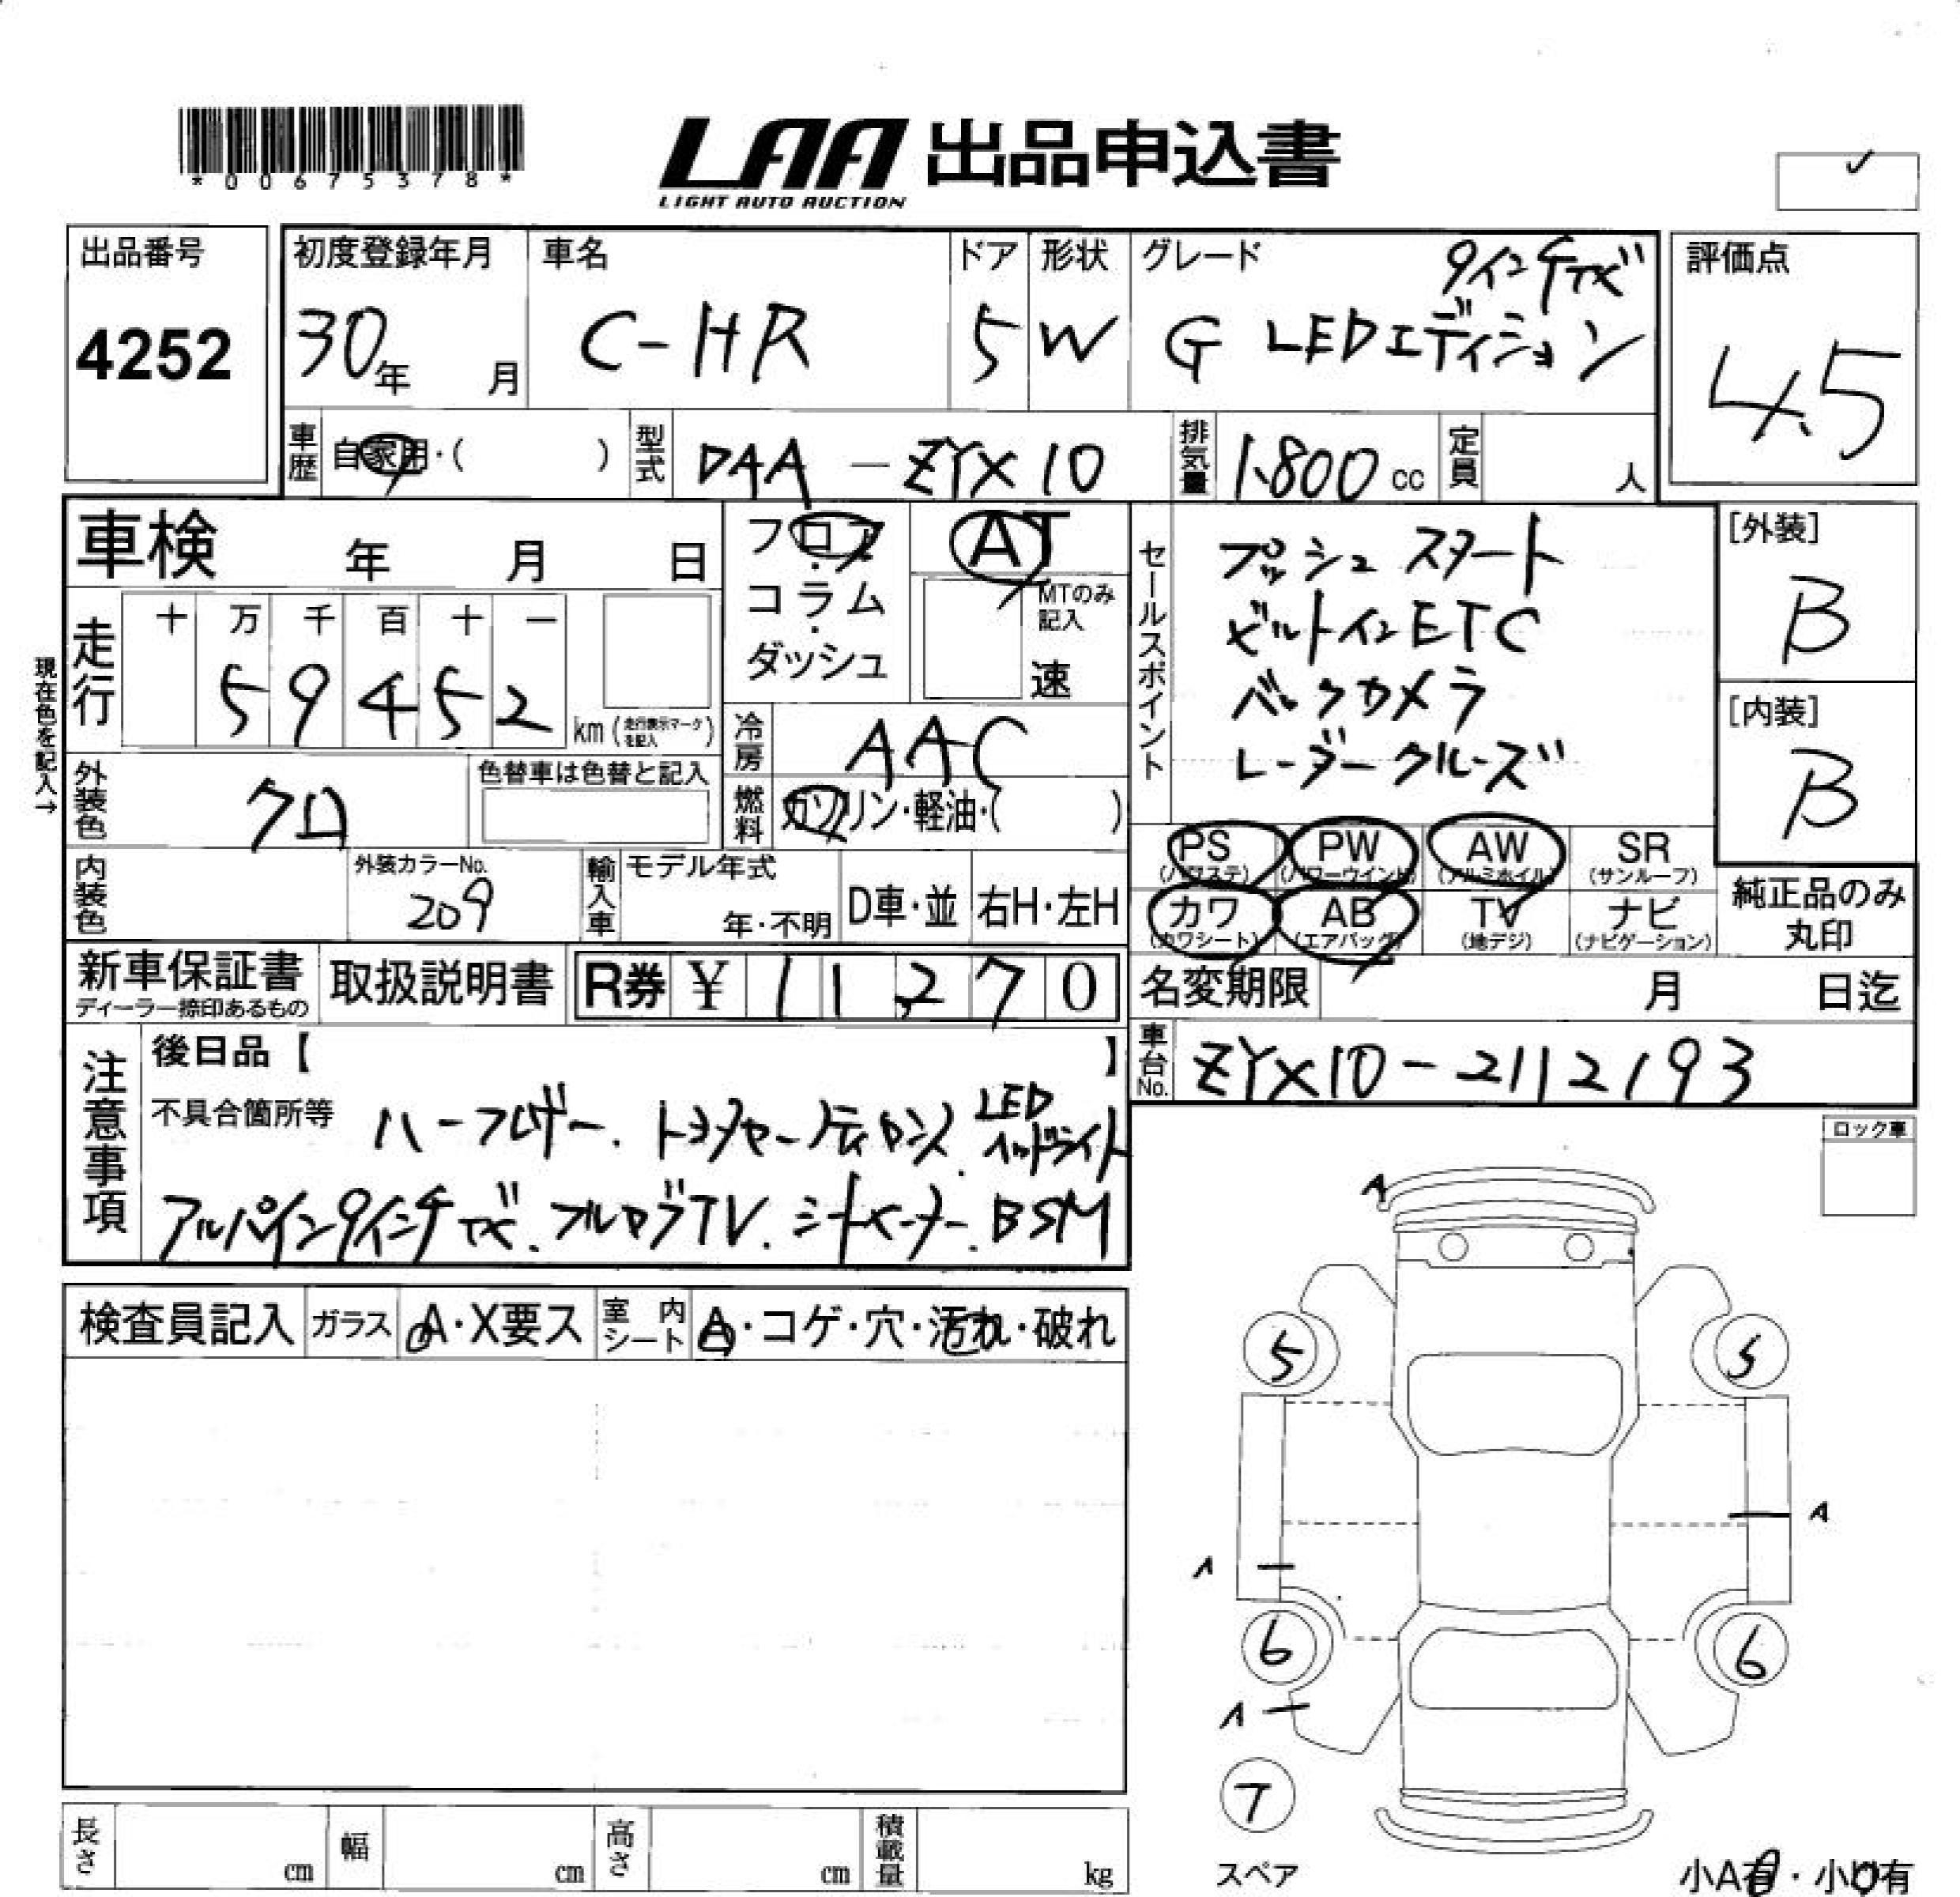 *00675378*
LAA 出品申込書
LIGHT AUTO AUCTION
出品番号
4252
初度登録年月
30年 月
車名
C-HR
ドア
5
形状
W
グレード
9インチナビ
G LEDエディション
評価点
4.5
車歴 自家用・( )
型式 DAA-ZYX10
排気量 1.800 cc
定員 人
車検 年 月 日
フロア
・
コラム
・
ダッシュ
AT
MTのみ
記入
速
セールスポイント
プッシュスタート
ビルトインETC
バックカメラ
レーダークルーズ
[外装]
B
[内装]
B
現在色を記入→
走行
十 万 千 百 十 一
5 9 4 5 2
km(走行表示マークを記入)
冷房 AAC
外装色 クロ
色替車は色替と記入
燃料 ガソリン・軽油・( )
内装色
外装カラーNo.
209
輸入車
モデル年式
年・不明
D車・並
右H・左H
PS
(パワステ)
PW
(パワーウインド)
AW
(アルミホイル)
SR
(サンルーフ)
カワ
(カワシート)
AB
(エアバッグ)
TV
(地デジ)
ナビ
(ナビゲーション)
純正品のみ
丸印
新車保証書
ディーラー捺印あるもの
取扱説明書
R券 ¥ 11,270
名変期限 月 日迄
注意事項
後日品【 】
車台No. ZYX10-2112193
不具合箇所等 ハーフレザー.
LED
ヘッドライト
アルパイン9インチナビ.フルセグTV.シートヒーター.BSM
ロック車
A
検査員記入
ガラス A・X要ス
室内シート A・コゲ・穴・汚れ・破れ
5 5
A
A
6 6
A
7
スペア
長さ cm
幅 cm
高さ cm
積載量 kg
小A有・小U有